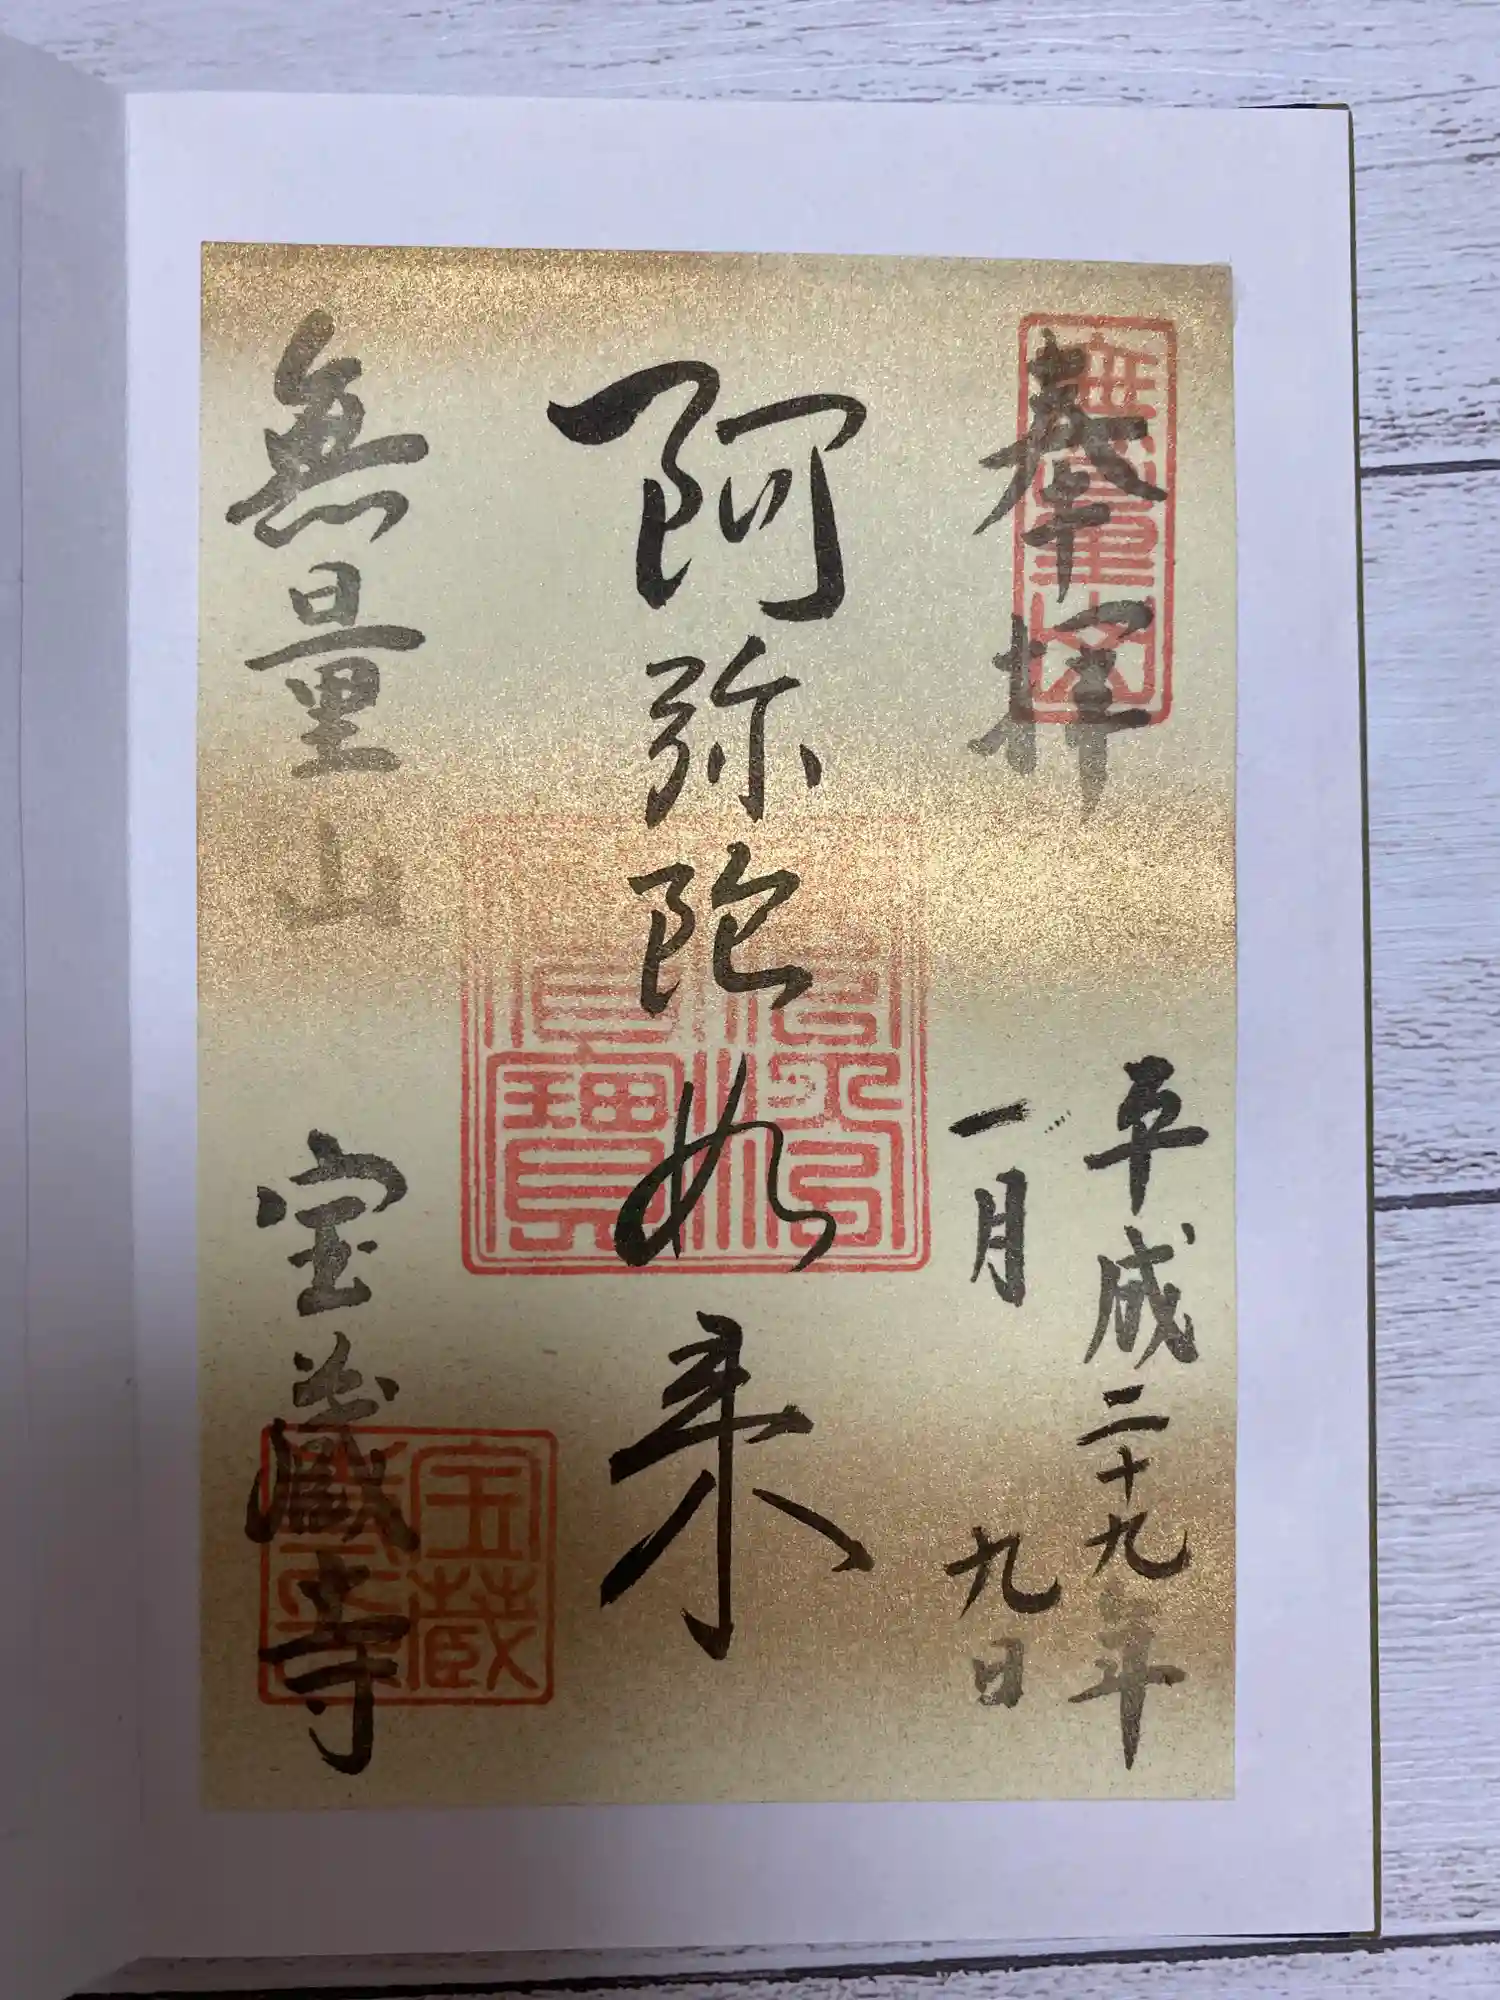 奉拝
無量山
平成二十九年
一月九日
阿弥陀如来
佛法僧寶
無量山
宝蔵寺
宝蔵